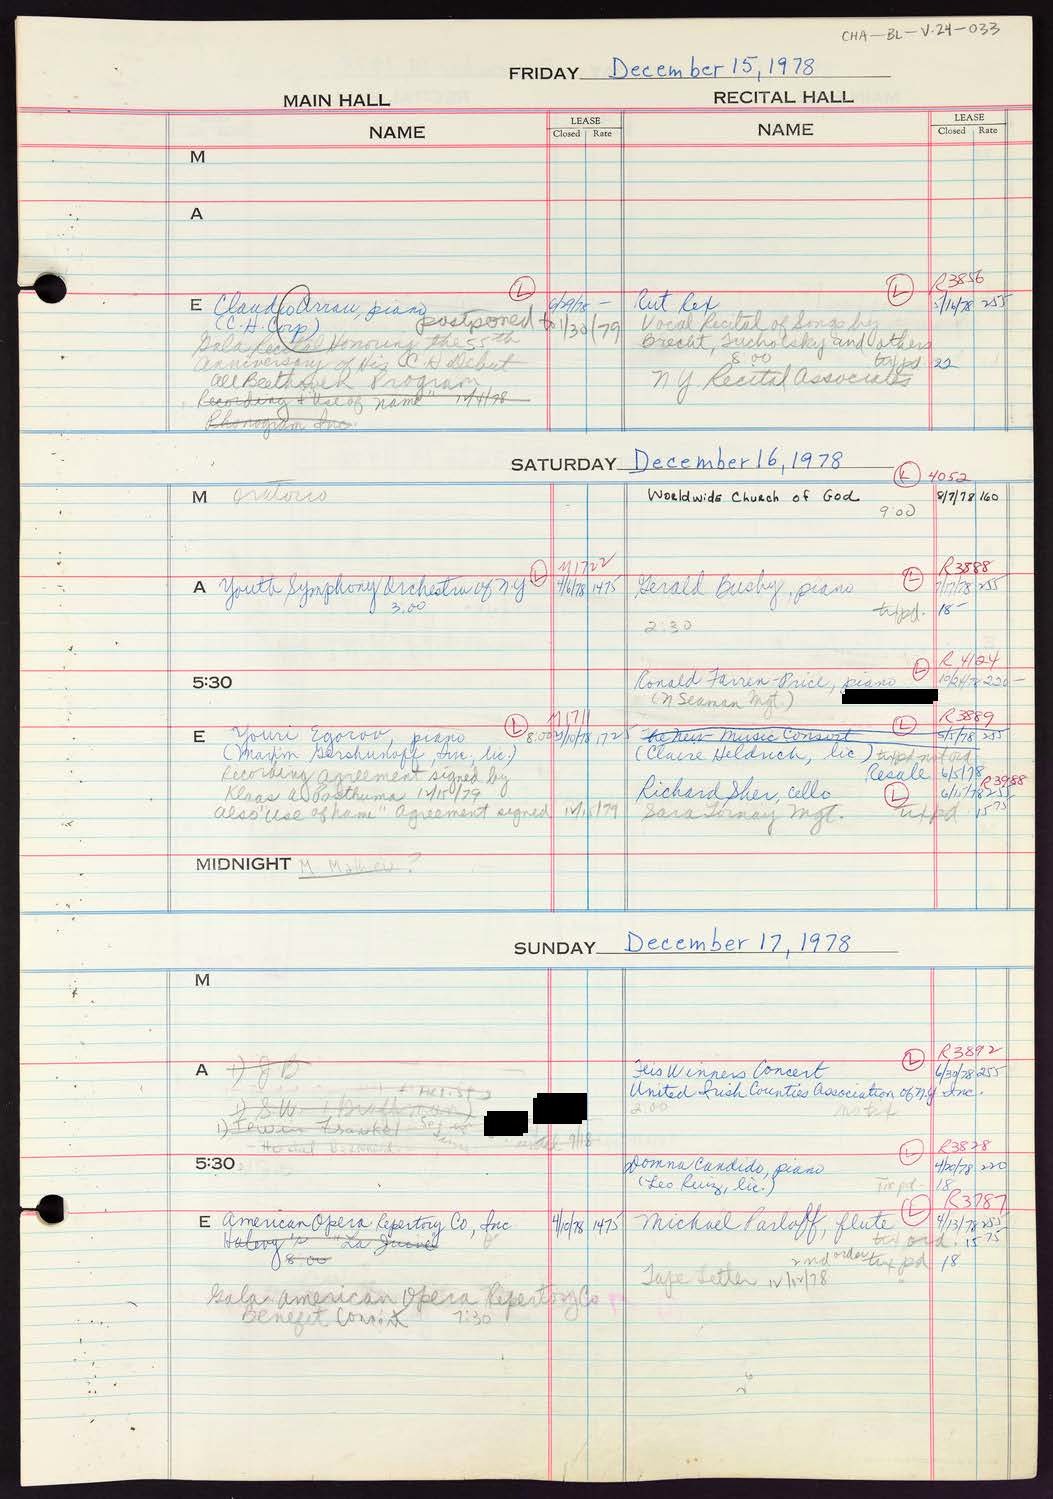 CHA-BL-V.24-033
FRIDAY December 15, 1978
MAIN HALL
RECITAL HALL
NAME
LEASE
Closed Rate
NAME
LEASE
Closed Rate
M
A
E Claudio Arrau, piano Ⓛ 6/29/78 -
(C.H. Corp) postponed to 1/30/79
Gala Recital Honoring the 55th
Anniversary of His C H Debut
All Beethoven Program
Recording & "Use of name" 12/4/78
Phonogram Inc.
Ⓛ R3856
Rut Rex 5/16/78 255
Vocal Recital of Songs by
Brecht, Tucholsky and others
8:00 tx pd 22
NY Recital Associates
SATURDAY December 16, 1978
M Oratorio
Ⓛ 4052
Worldwide Church of God 8/7/78 160
9:00
A Youth Symphony Orchestra of NY Ⓛ M1722 4/6/78 1475
3:00
Gerald Busby, piano Ⓛ R3888 7/7/78 255
tx pd. 18-
2:30
5:30
Ronald Farren-Price, piano Ⓛ R4124 10/24/78 220-
(N Seaman Mgt.)
E Youri Egorov, piano Ⓛ M1711 8:00 2/10/78 1725
(Maxim Gershunoff, Inc, lic.)
Recording agreement signed by
Klaas A Posthuma 12/15/79
also "use of name" Agreement signed 12/15/79
The New Music Consort Ⓛ R3889 5/5/78 255
(Claire Heldrich, lic) tx pd not ord
Resale 6/5/78
Richard Sher, cello Ⓛ R3988 6/15/78 255
Sara Tornay Mgt. tx pd 15.75
MIDNIGHT M ?
SUNDAY December 17, 1978
M
A 1) J B
1) S.W.
1)
Ⓛ R3892
Feis Winners Concert 6/30/78 255
United Irish Counties Association of NY Inc.
2:00 no tx
5:30
Ⓛ R3828
Domna Candido, piano 4/20/78 220
(Leo Ruiz, lic.) Tx pd. 18
E American Opera Repertory Co, Inc 4/10/78 1475
Halevy's "La Juive"
8:00
Gala American Opera Repertory Co
Benefit Concert 7:30
Michael Parloff, flute Ⓛ R3787 4/13/78 255
tx ord. 15.75
2nd order tx pd 18
Tape Letter 12/12/78